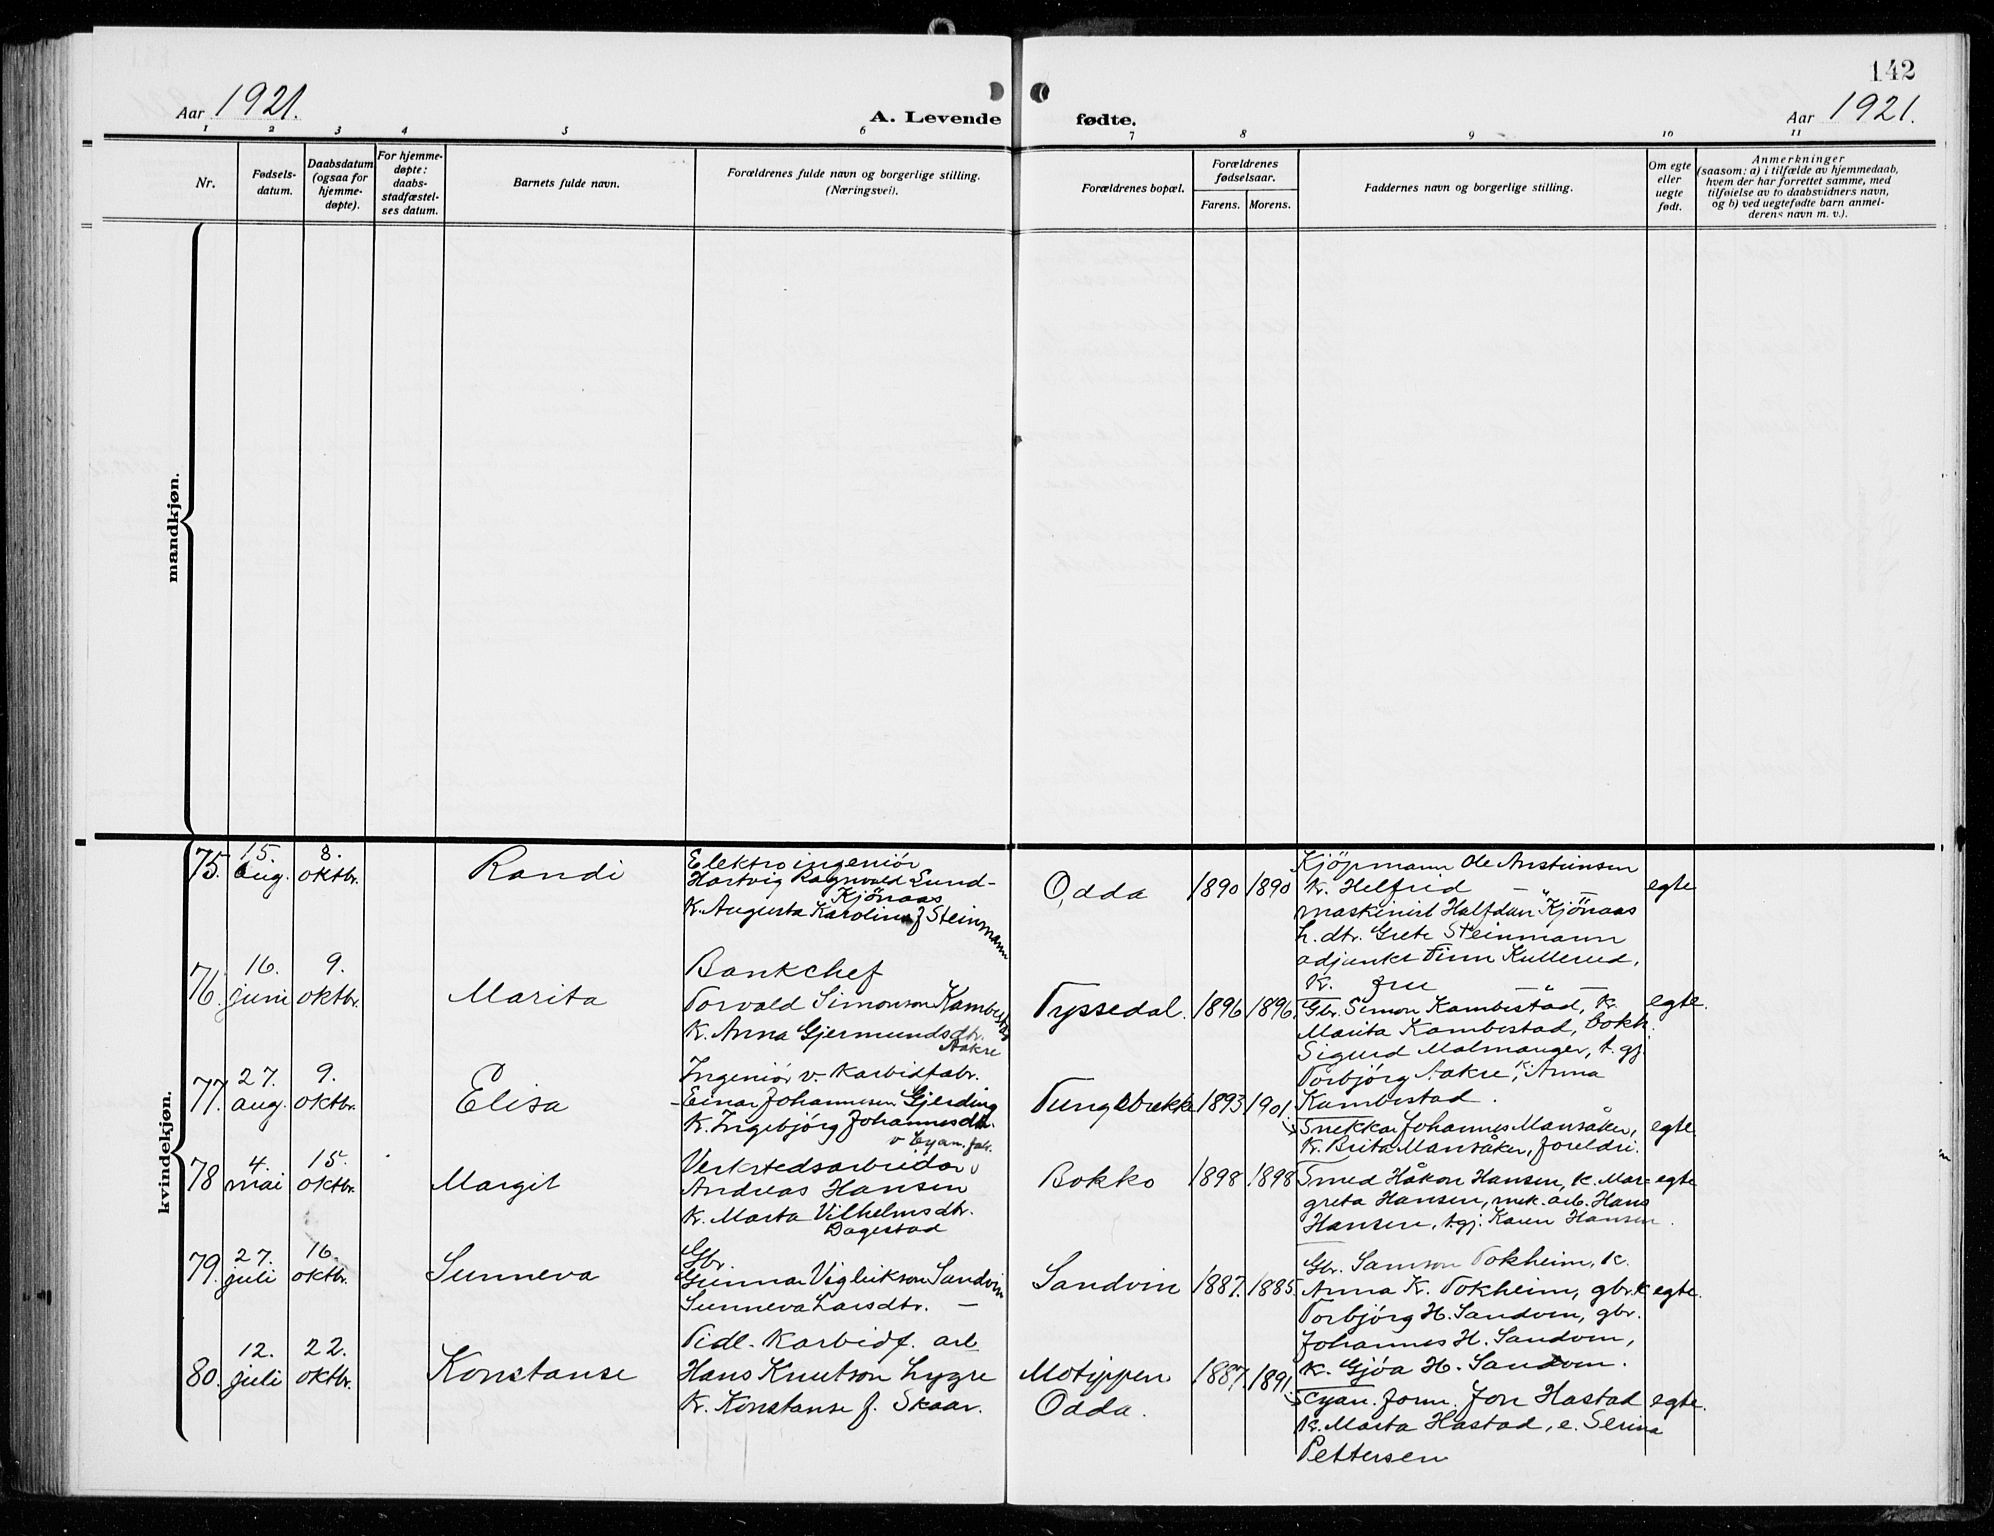 142
Aar 1921. A. Levende fødte. Aar 1921.
1 2 3 4 5 6 7 8 9 10 11
Nr.
Fødsels-
datum.
Daabsdatum
(ogsaa for
hjemme-
døpte).
For hjemme-
døpte:
daabs-
stadfæstel-
ses datum.
Barnets fulde navn.
Forældrenes fulde navn og borgerlige stilling.
(Næringsvei).
Forældrenes bopæl.
Forældrenes
fødselsaar.
Farens. Morens.
Faddernes navn og borgerlige stilling.
Om egte
eller
uegte
født.
Anmerkninger
(saasom: a) i tilfælde av hjemmedaab,
hvem der har forrettet samme, med
tilføielse av to daabsvidners navn,
og b) ved uegtefødte barn anmel-
derens navn m. v.).
mandkjøn.
kvindekjøn.
75. 15. aug. 8. oktbr. Randi
Elektroingeniør
Hartvig Ragnvald Lund-
Kjönaas
K. Augusta Karoline f Steinmann
Odda 1890 1890
Kjöpmann Ole Anstensen
K. Helfrid — " —
maskinist Halfdan Kjönaas
h. dtr. Grete Steinmann
adjunkt Finn Kullerud,
K. fru — " —
egte
76. 16. juni 9. oktbr. Marita
Bankchef
Torvald Simonson Kambestad
K. Anna Gjermundsdtr.
Aakre
Tyssedal. 1896 1896.
Gbr. Simon Kambestad, K.
Marita Kambestad, bokh.
Sigurd Malmanger, t. gj.
Torbjörg Aakre, K. Anna
Kambestad.
egte.
77. 27. aug. 9. oktbr. Elisa
Ingeniör v. Karbidfabr.
Einar Johannesen Gjerding
K. Ingebjörg Johannesdtr.
Tungebrekke 1893 1901.
Snekkar Johannes Mansåker,
K. Brita Mansåker, foreldri.
egte.
78 4. mai 15. oktbr. Margit
v Cyan. fabr.
Verkstedsarbeidar
Andreas Hansen
K. Marta Vilhelmsdtr.
Dagestad
Bokko 1898. 1898
Smed Håkon Hansen, K. Mar-
greta Hansen, mek. arb. Hans
Hansen, t.gj. Karen Hansen.
egte
79. 27. juli 16. oktbr. Sunneva
Gbr.
Gunnar Vigleikson Sandvin
Sunneva Larsdtr. —
Sandvin 1887. 1885.
Gbr. Samson Tokheim, K.
Anna K. Tokheim, gbr. K
Torbjörg H. Sandven, gbr.
Johannes H. Sandven,
K. Gjöa H. Sandven.
egte.
80. 12. juli 22. oktbr. Konstanse
Tidl. Karbidf. arb
Hans Knutson Lygre
K. Konstanse f. Skaar.
Motippen
Odda. 1887. 1891.
Cyan. form. Jon Hastad
K. Marta Hastad, e. Serina
Pettersen
egte.